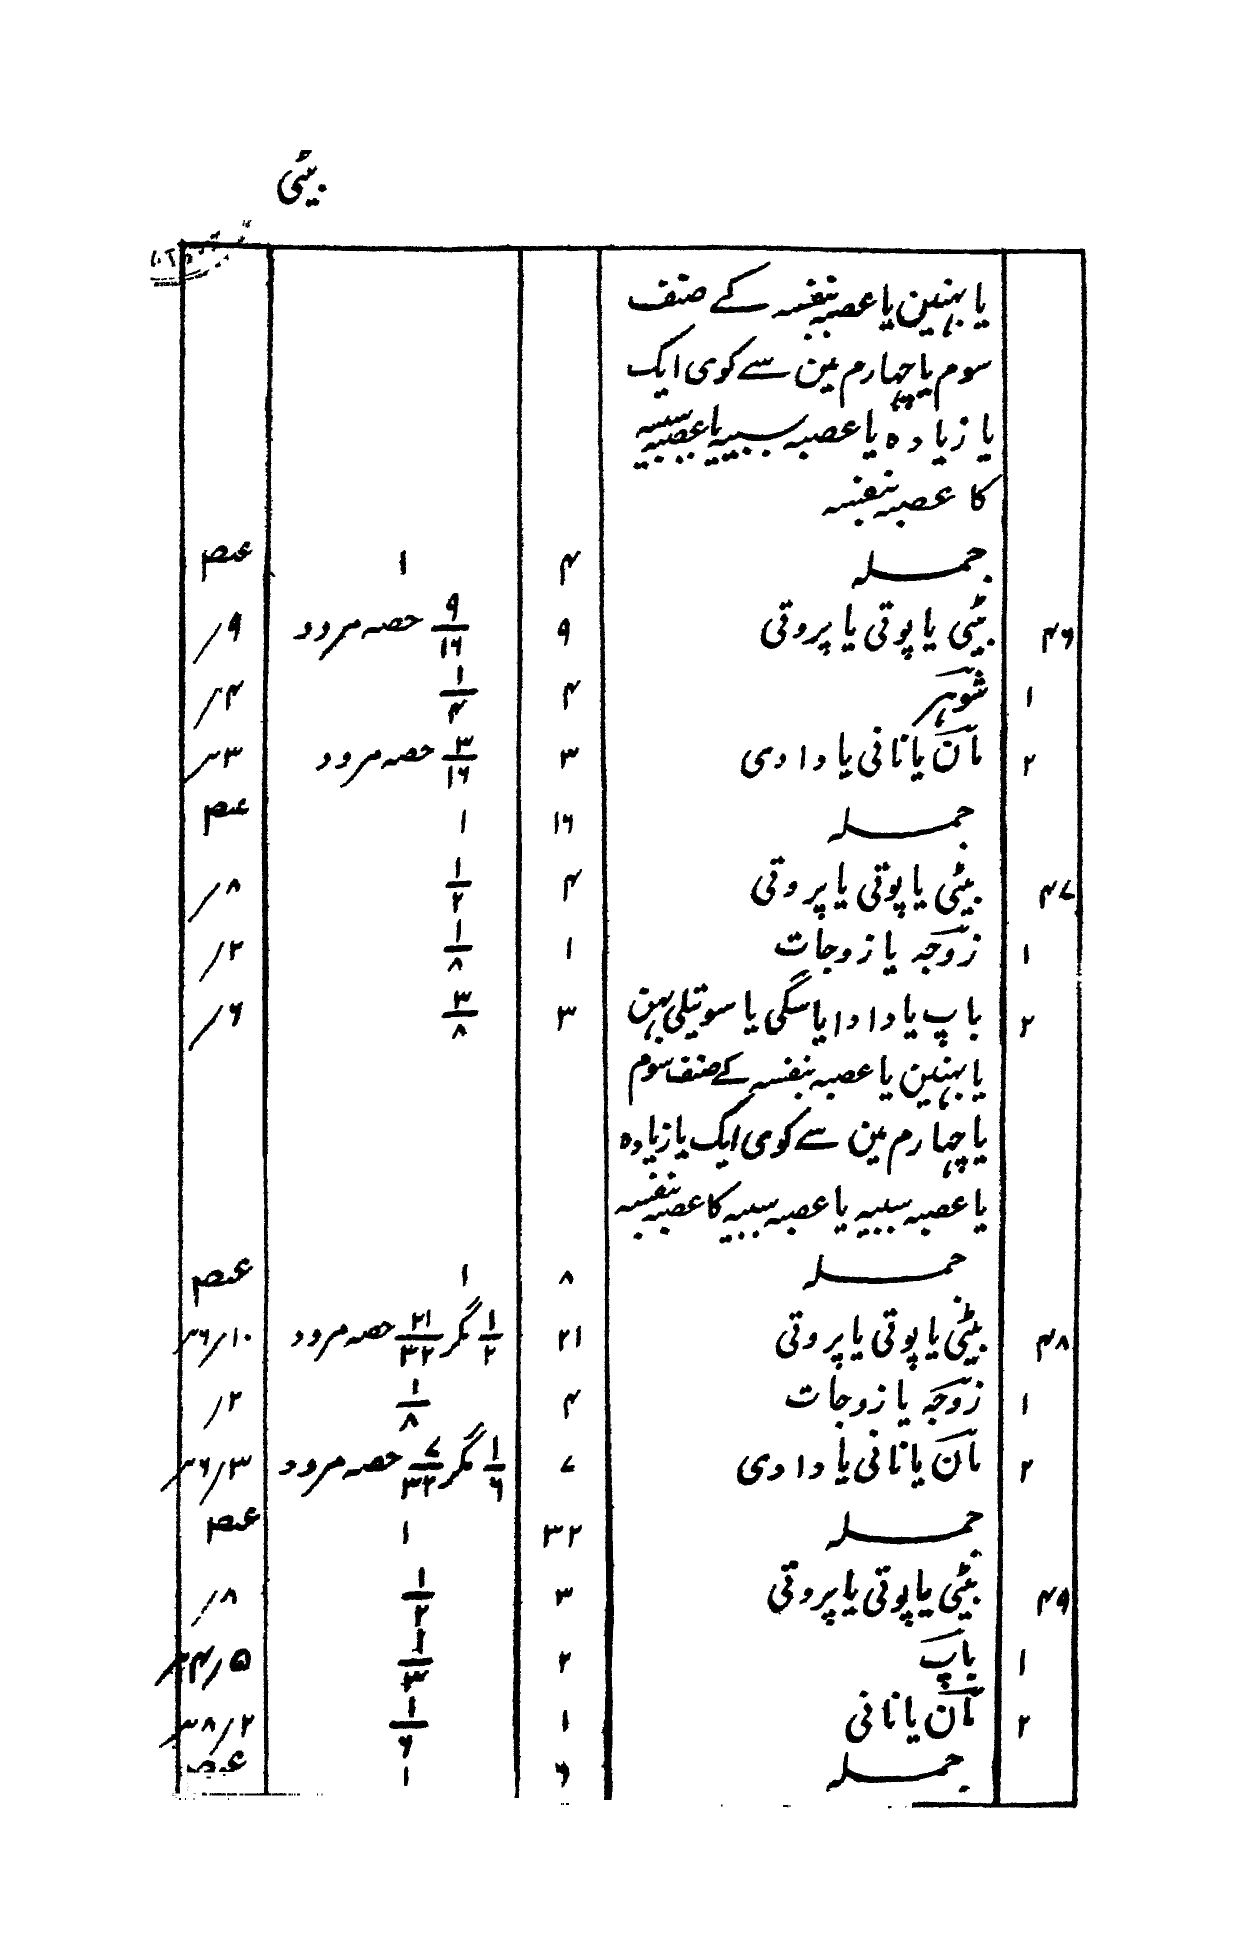 بیٹی
یا بہنین یا عصبہ بنفسہ کے صنف
سوم یا چہارم مین سے کوی ایک
یا زیادہ یا عصبہ سببیہ یا عصبہ سببیہ
کا عصبہ بنفسہ
جملہ ۴ ۱ عصہ
۴۶ بیٹی یا پوتی یا پروتی ۹ ۹/۱۶ حصہ مردود ۹/
۱ شوہر ۴ ۱/۴ ۴/
۲ مان یا نانی یا دادی ۳ ۳/۱۶ حصہ مردود ۳/
جملہ ۱۶ ۱ عصہ
۴۷ بیٹی یا پوتی یا پروتی ۴ ۱/۲ ۸/
۱ زوجہ یا زوجات ۱ ۱/۸ ۲/
۲ باپ یا دادا یا سگی یا سوتیلی بہن ۳ ۳/۸ ۶/
یا بہنین یا عصبہ بنفسہ کے صنف سوم
یا چہارم مین سے کوی ایک یا زیادہ
یا عصبہ سببیہ یا عصبہ سببیہ کا عصبہ بنفسہ
جملہ ۸ ۱ عصہ
۴۸ بیٹی یا پوتی یا پروتی ۲۱ ۱/۲ مگر ۲۱/۳۲ حصہ مردود ۱۰/۶
۱ زوجہ یا زوجات ۴ ۱/۸ ۲/
۲ مان یا نانی یا دادی ۷ ۱/۶ مگر ۷/۳۲ حصہ مردود ۳/۶
جملہ ۳۲ ۱ عصہ
۴۹ بیٹی یا پوتی یا پروتی ۳ ۱/۲ ۸/
۱ باپ ۲ ۱/۳ ۵/۴
۲ مان یا نانی ۱ ۱/۶ ۲/۸
جملہ ۶ ۱ عصہ